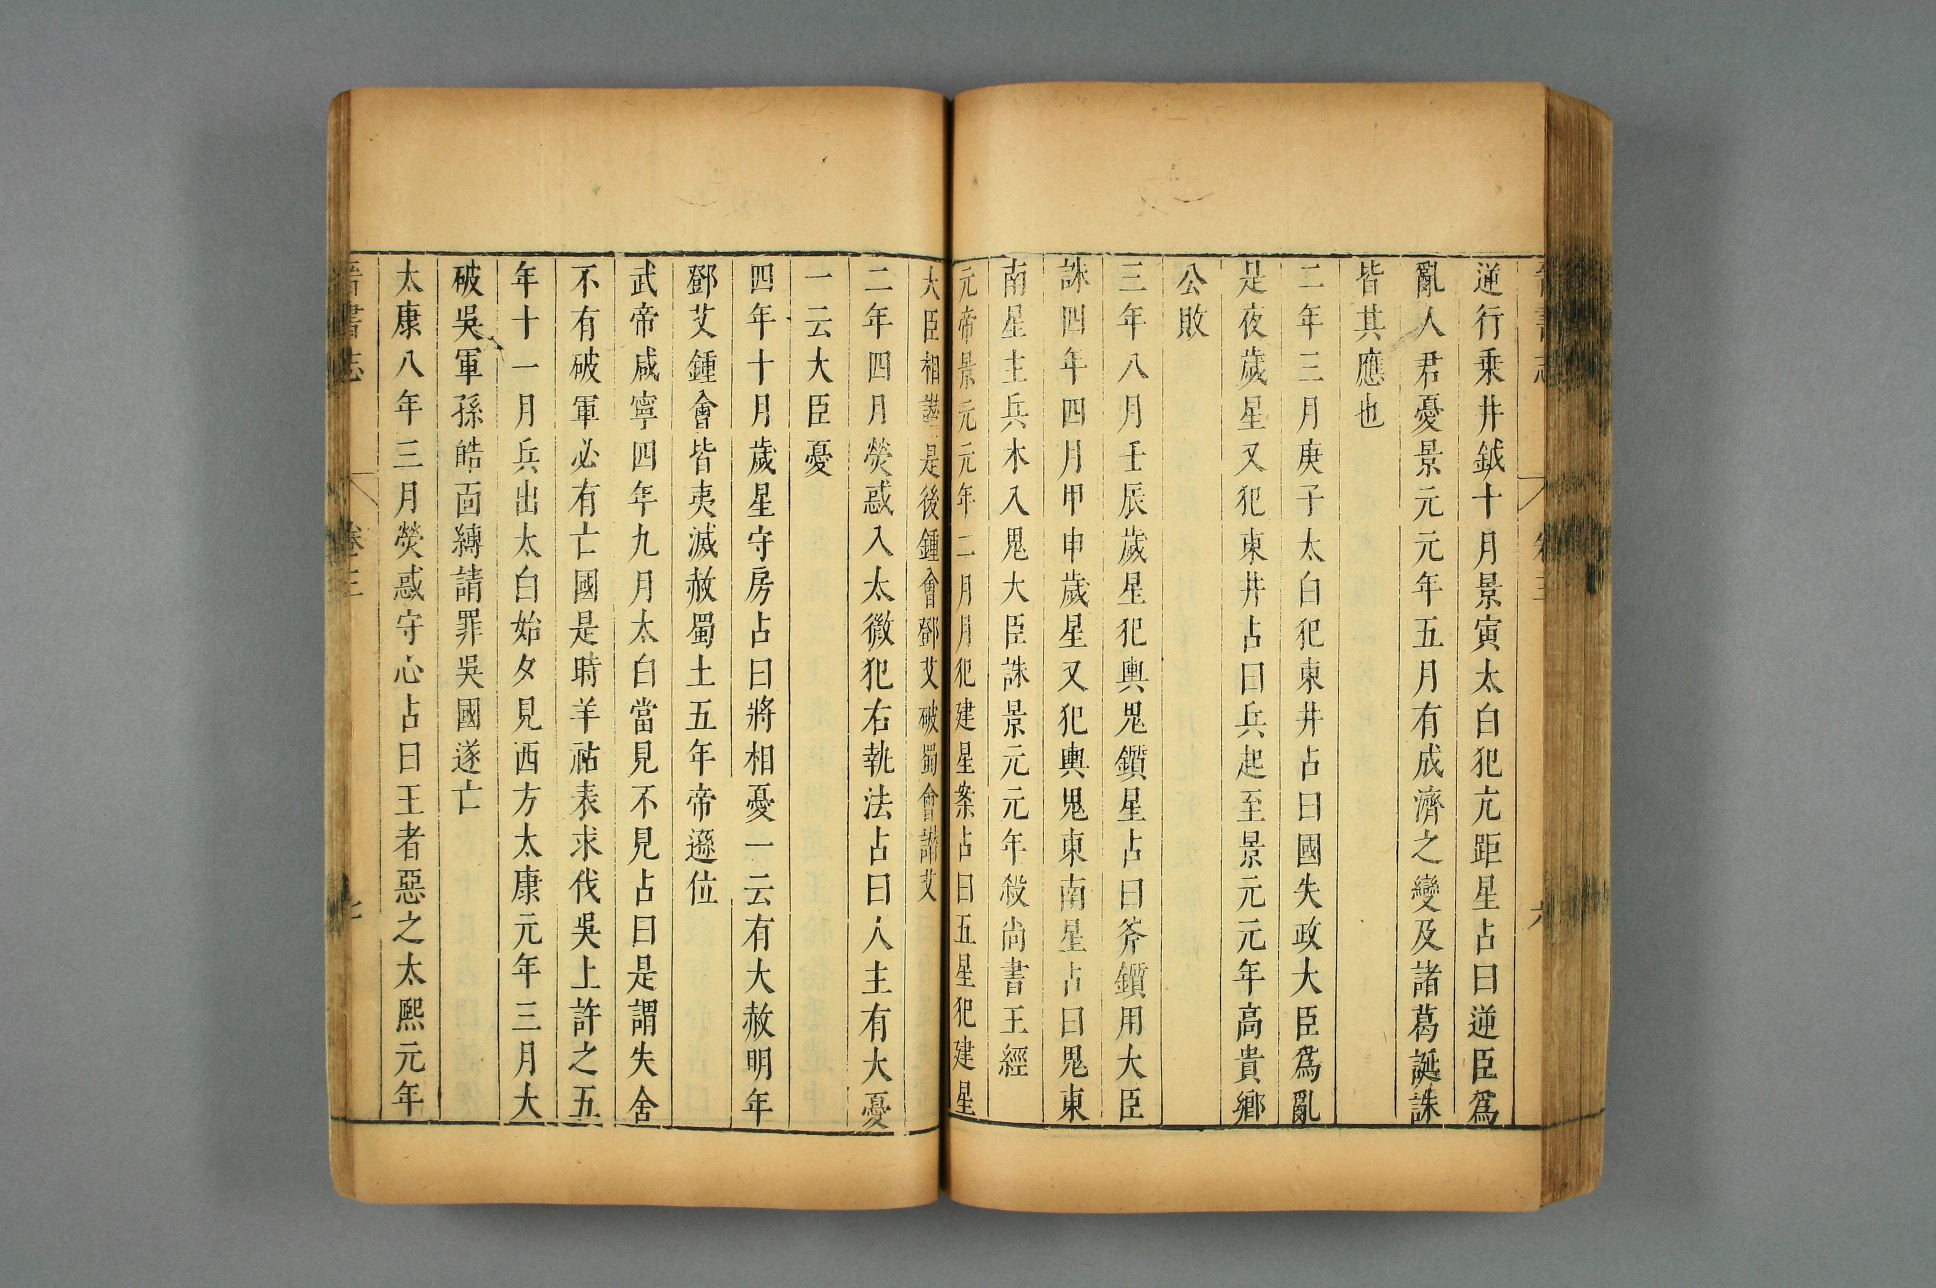 晉書志 卷三 六
逆行乘井鉞十月景寅太白犯亢距星占曰逆臣爲
亂人君憂景元元年五月有成濟之變及諸葛誕誅
皆其應也
二年三月庚子太白犯東井占曰國失政大臣爲亂
是夜歲星又犯東井占曰兵起至景元元年高貴鄉
公敗
三年八月壬辰歲星犯輿鬼鑕星占曰斧鑕用大臣
誅四年四月甲申歲星又犯輿鬼東南星占曰鬼東
南星主兵木入鬼大臣誅景元元年殺尚書王經
元帝景元元年二月月犯建星案占曰五星犯建星
大臣相譖是後鍾會鄧艾破蜀會譖艾
二年四月熒惑入太微犯右執法占曰人主有大憂
一云大臣憂
四年十月歲星守房占曰將相憂一云有大赦明年
鄧艾鍾會皆夷滅赦蜀土五年帝遜位
武帝咸寧四年九月太白當見不見占曰是謂失舍
不有破軍必有亡國是時羊祜表求伐吳上許之五
年十一月兵出太白始夕見西方太康元年三月大
破吳軍孫皓面縛請罪吳國遂亡
太康八年三月熒惑守心占曰王者惡之太熙元年
晉書志 卷三 七